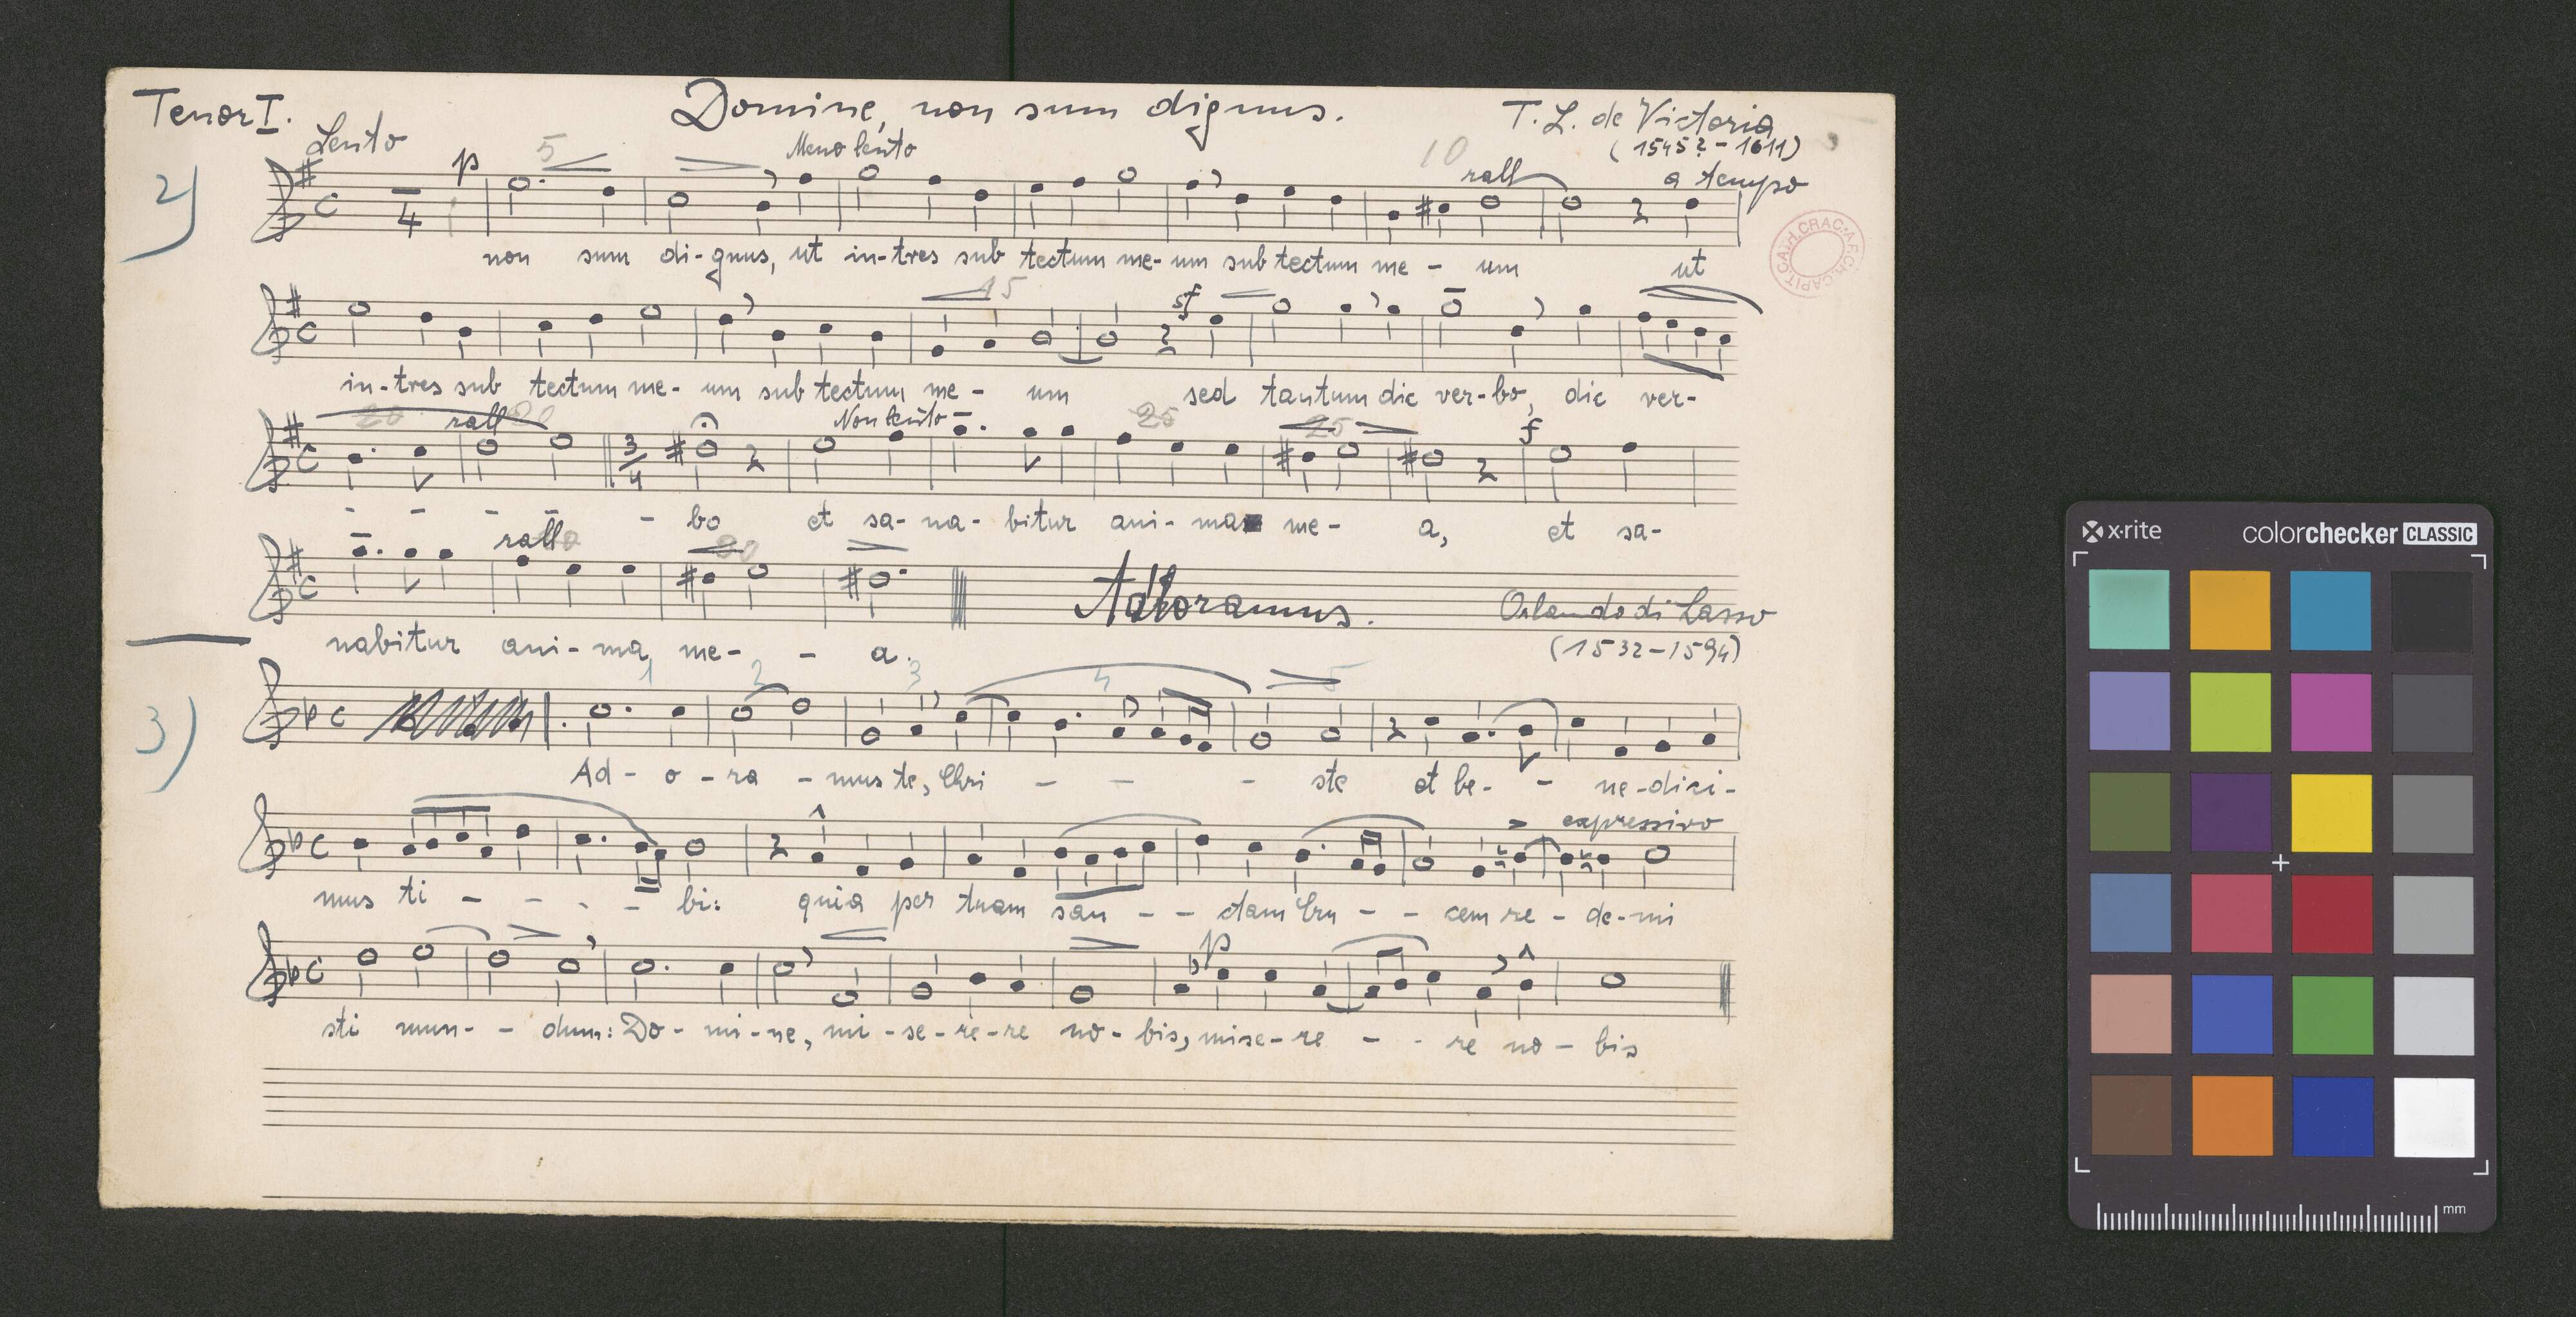 Tenor I.
Domine, non sum dignus.
T. L. de Victoria
(1545? - 1611)
Lento
p
5
Meno lento
10
rall
a tempo
2)
4
non sum di-gnus, ut in-tres sub tectum me-um sub tectum me - um ut
CATH. CRAC. CAPIT.
15
sf
in-tres sub tectum me- um sub tectum me - um sed tantum dic ver-bo, dic ver-
20 rall 20 Non lento 25 25 f
3/4
- - - - - bo et sa- na- bitur ani- ma me- a, et sa-
rall
30
Adoramus.
Orlando di Lasso
(1532-1594)
nabitur ani- ma me- - a.
1 2 3 4 5
3)
Ad - o - ra - mus te, Chri - - - ste et be- - ne-dici-
expressivo
mus ti - - - - bi: quia per tuam san - - ctam Cru - - cem re - de-mi
p
sti mun- - dum: Do- mi-ne, mi-se-re-re no-bis, mise-re - - re no - bis
x·rite
colorchecker CLASSIC
mm